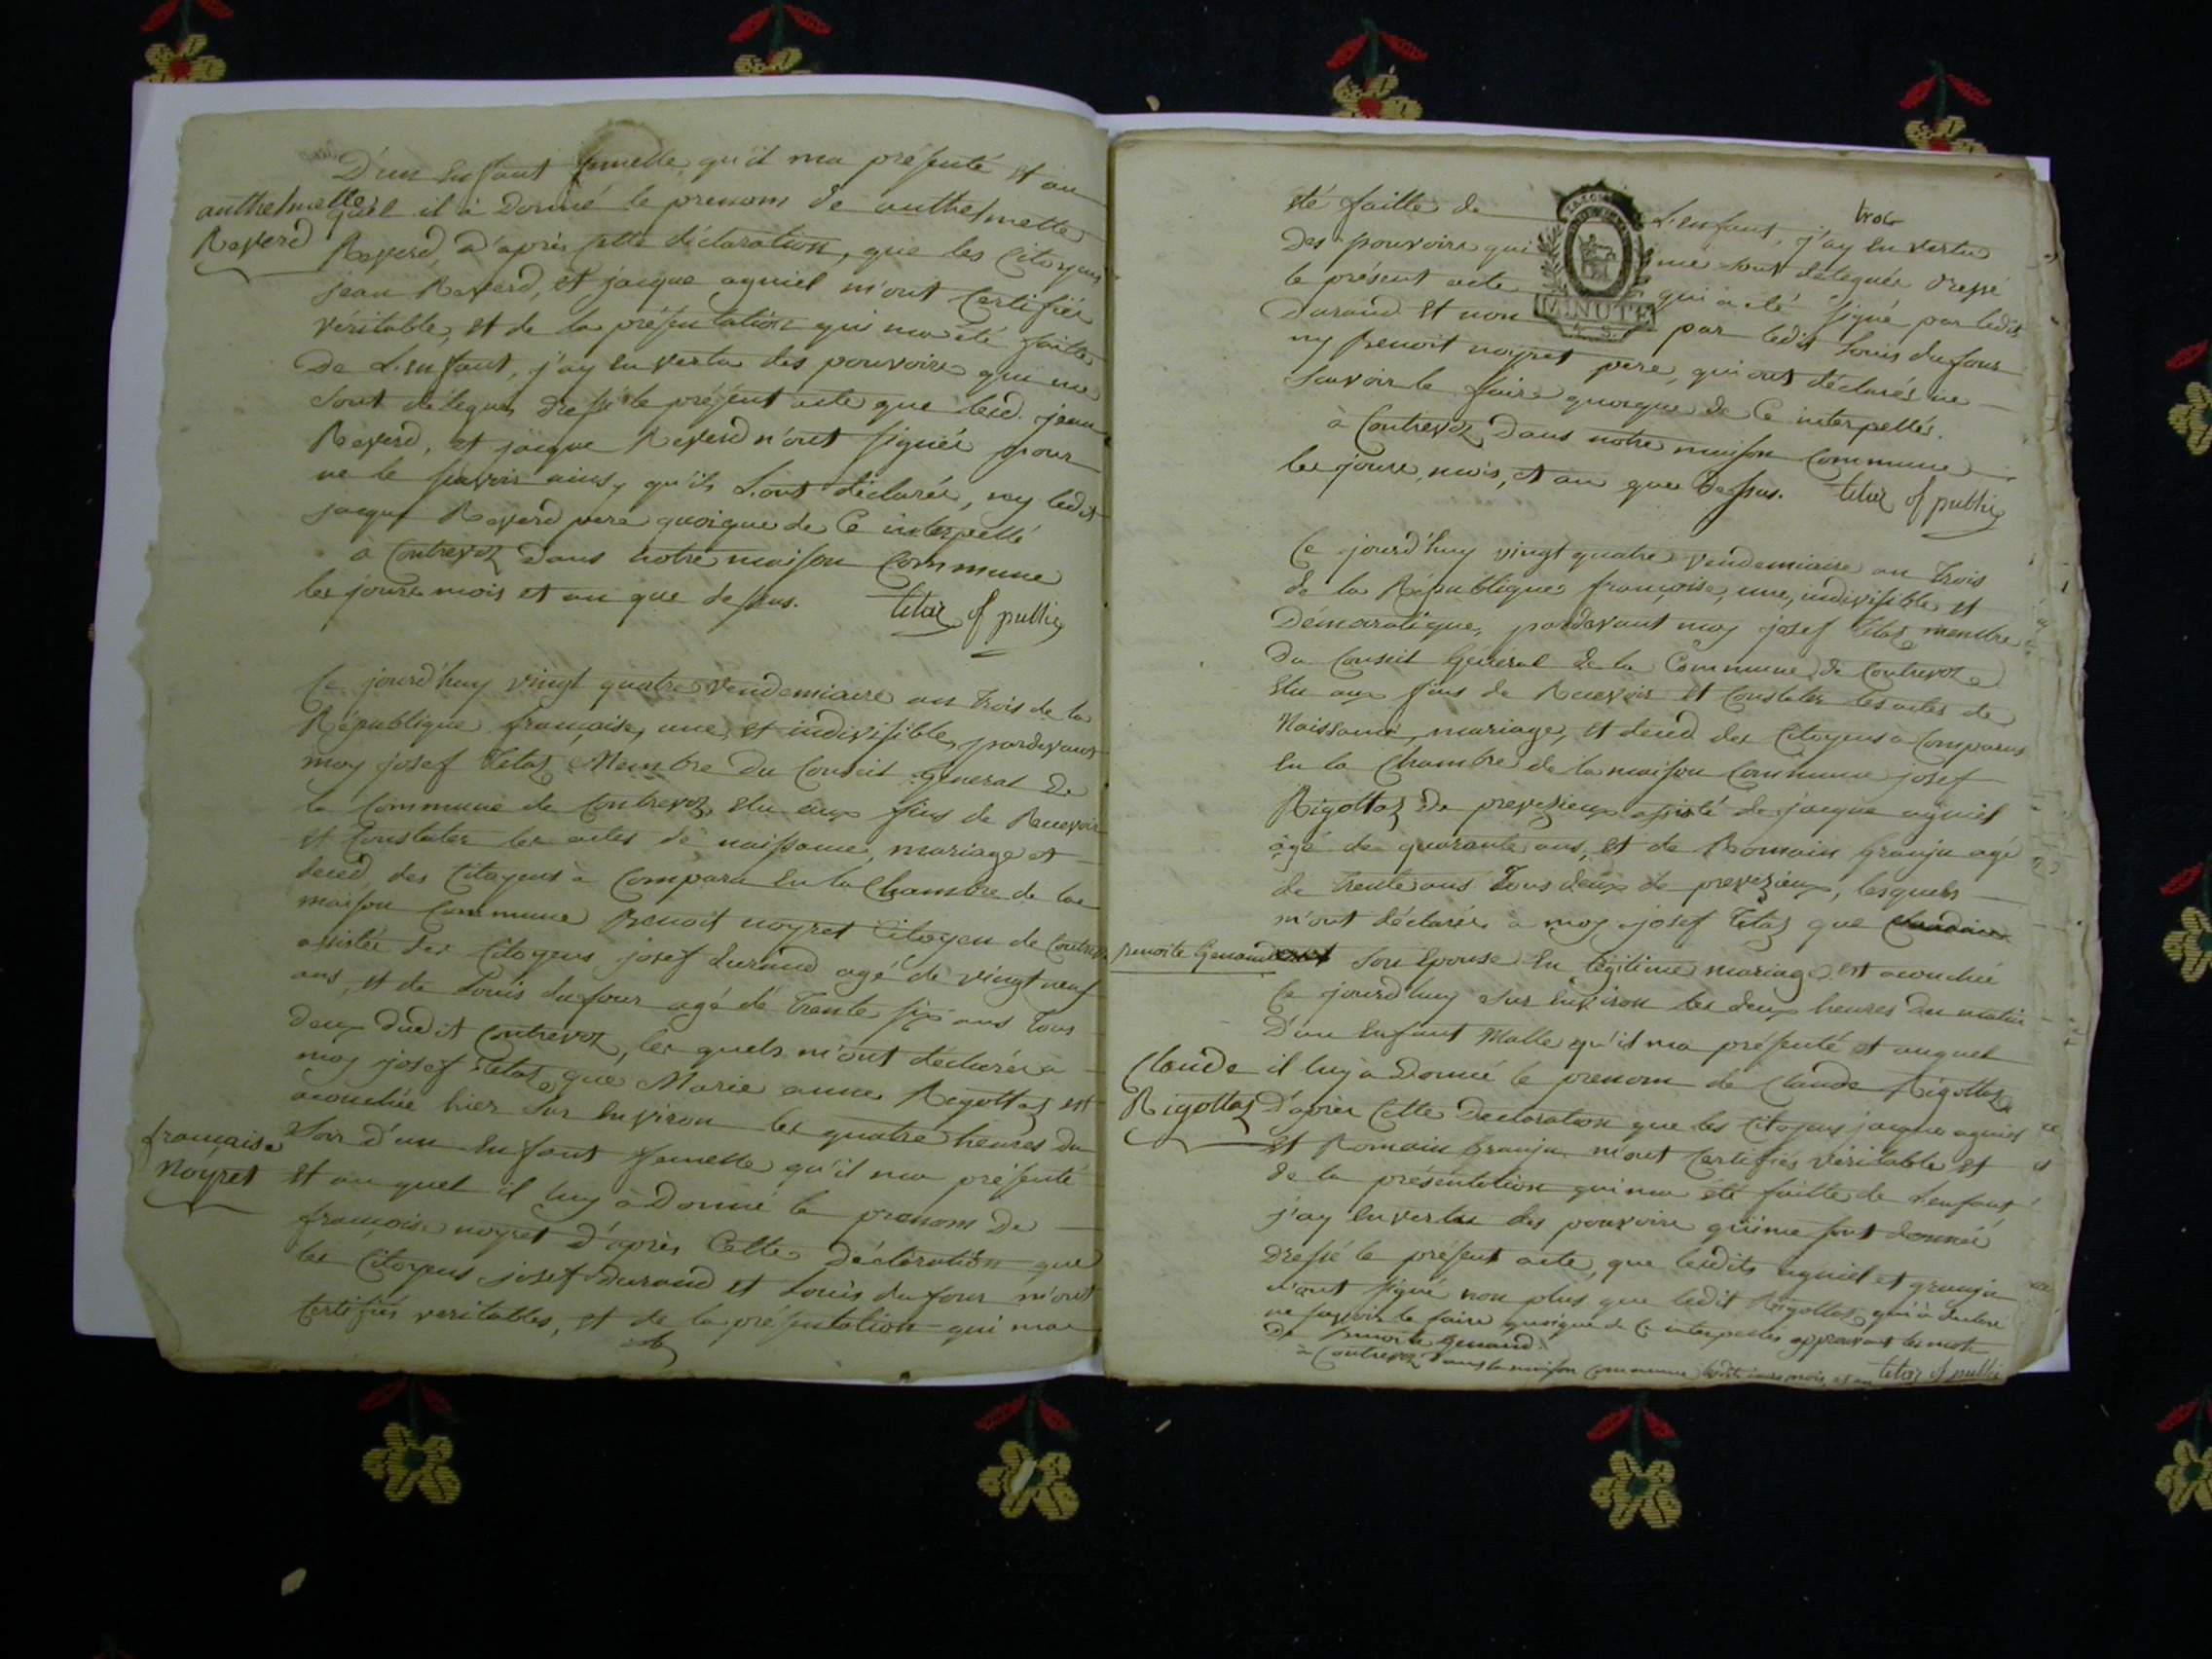 D'un Enfant femelle, qu'il ma présenté et au
anthelmette
Reverd
quel il à Donné le prenom de anthelmette
Reverd, D'après cette déclaration, que les Citoyens
jean Reverd, et jacque agniel m'ont Certifiés
véritable, et de la présentation qui ma été faitte
De L'enfant, j'ay En vertu des pouvoirs qui me
sont délégués dressé le présent acte que led. jean
Reverd, et jacque Reverd n'ont signés pour
ne le savoir ainsy qu'ils L'ont déclarés, ny ledit
jacque Reverd pere quoique de Ce interpellé
à Contrevoz Dans notre maison Commune
les jours mois et an que dessus. tetaz of public
Ce jourd'huy vingt quatre Vendemiaire an trois de la
République française, une, et indivisible, pardevant
moy josef Tetaz Membre Du Conseil general De
la Commune de Contrevoz, Elu aux fins de Recevoir
et Constater les actes de naissance, mariage et
deced des Citoyens à Comparu En la Chambre de la
maison Commune Benoit noyret Citoyen de
assistés des Citoyens josef durand agé de vingt neuf
ans, et de Louis dufour agé de trente six ans Tous
Deux dudit Contrevoz, les quels m'ont déclarés à
moy josef Tetaz que Marie anne Rigottaz est
acouchée hier sur Environ les quatre heures du
française
Noyret
Soir d'un Enfant femelle qu'il ma présenté
et au quel il luy à Donné le prenom De
françoise noyret D'après Cette Déclaration que
les Citoyens josef Durand et Louis dufour m'ont
Certifiés veritables, et de la présentation qui ma
trois
été faitte de L'enfant, j'ay En vertu
Des pouvoirs qui me sont délégués dressé
le présent acte qui a été signé par ledit
MINUTE
Durand et non par ledit Louis dufour
ny Benoit noyret pere, qui ont déclarés ne
Savoir le faire quoique de Ce interpellés.
à Contrevoz Dans notre maison Commune
les jours, mois, et an que Dessus. tetaz of public
Ce jourd'huy vingt quatre vendemiaire an trois
de la République françoise, une, indivisible et
Démocratique, pardevant moy josef Tetaz membre
Du Conseil Général de la Commune de Contrevoz
Elu aux fins de Recevoir et Constater les actes de
Naissance, mariage, et deced des Citoyens à Comparus
En la Chambre de la maison Commune josef
Rigottaz de prevezieux assisté de jacque agniel
âgé de quarante ans, et de Romain granju agé
de trente ans Tous deux de prevezieux, lesquels
m'ont déclarés à moy josef Tetaz que
benoite Genand
Son Epouse En légitime mariage est acouchée
Ce jourd'huy sur Environ les deux heures du matin
D'un Enfant Malle qu'il ma présenté et auquel
Claude
Rigottaz
il luy à Donné le prenom de Claude Rigottaz
D'après Cette Declaration que les Citoyens jacque agniel
et Romain granju m'ont Certifiés véritable et
de la présentation qui ma été faitte de L'enfant
j'ay En vertu des pouvoirs qui me sont donnés
Dressé le présent acte, que lesdits agniel et granju
n'ont signé non plus que ledit Rigottaz qui à declaré
ne savoir le faire quoique de Ce interpelles approuvant les mots
De benoite genand.
à Contrevoz Dans la maison Commune lesdits jours mois, et an tetaz of public